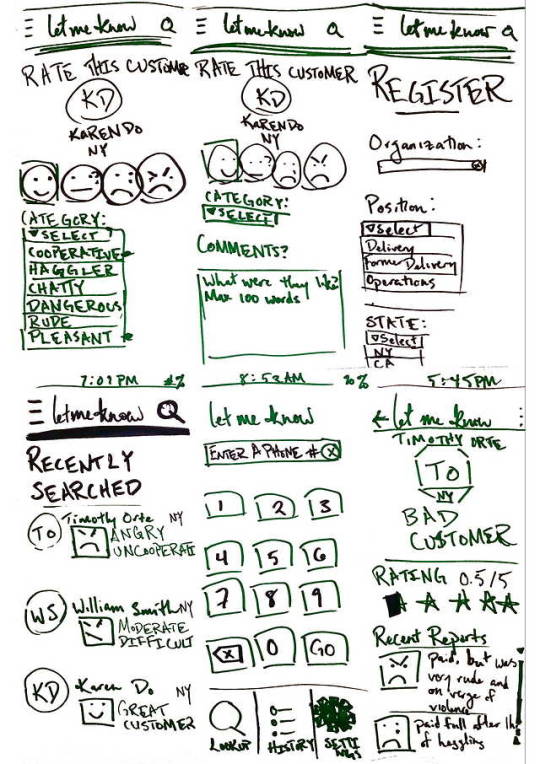 let me know
RATE THIS CUSTOMER
KD
KAREN DO
NY
CATEGORY:
SELECT
COOPERATIVE
HAGGLER
CHATTY
DANGEROUS
RUDE
PLEASANT
let me know
RATE THIS CUSTOMER
KD
KAREN DO
NY
CATEGORY:
SELECT
COMMENTS?
What were they like?
Max 100 words
let me know
REGISTER
Organization:
Position:
Select
Delivery
Former Delivery
Operations
STATE:
Select
NY
CA
7:07 PM
let me know
RECENTLY
SEARCHED
TO Timothy Orte NY
ANGRY
UNCOOPERATI
WS William Smith NY
MODERATE
DIFFICULT
KD Karen Do NY
GREAT
CUSTOMER
8:53 AM
let me know
ENTER A PHONE # X
1 2 3
4 5 6
7 8 9
X 0 GO
LOOKUP HISTORY SETTINGS
5:45 PM
let me know
TIMOTHY ORTE
TO
NY
BAD
CUSTOMER
RATING 0.5/5
Recent Reports
Paid, but was
very rude and
on verge of
violence
paid full after 1h
of haggling